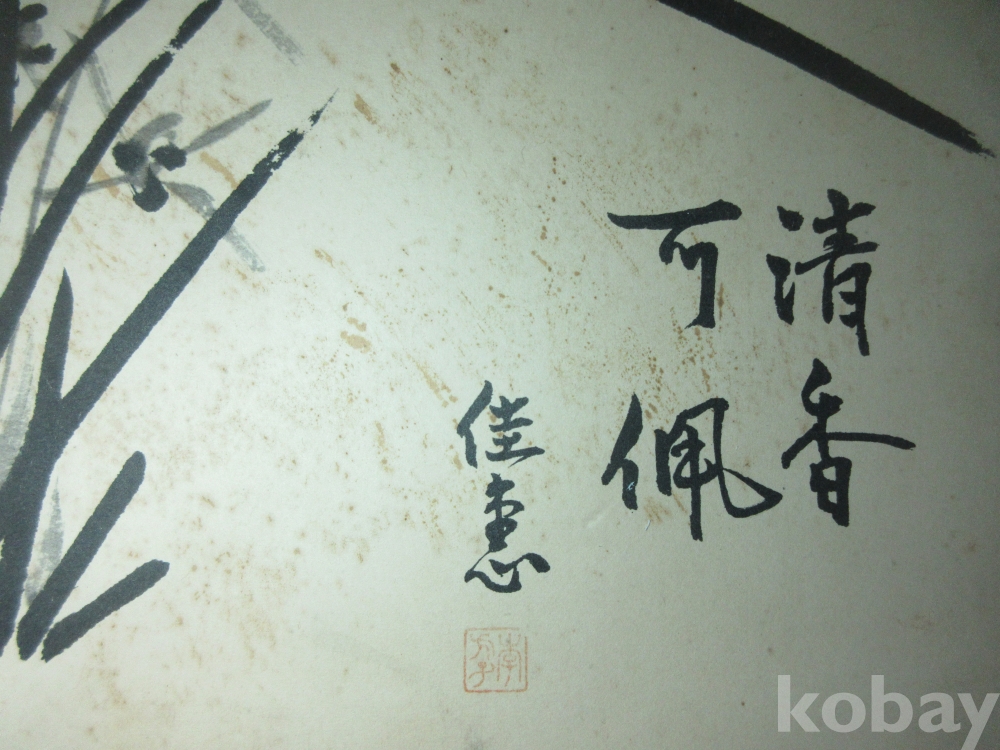 清香
可佩
佳惠
kobay